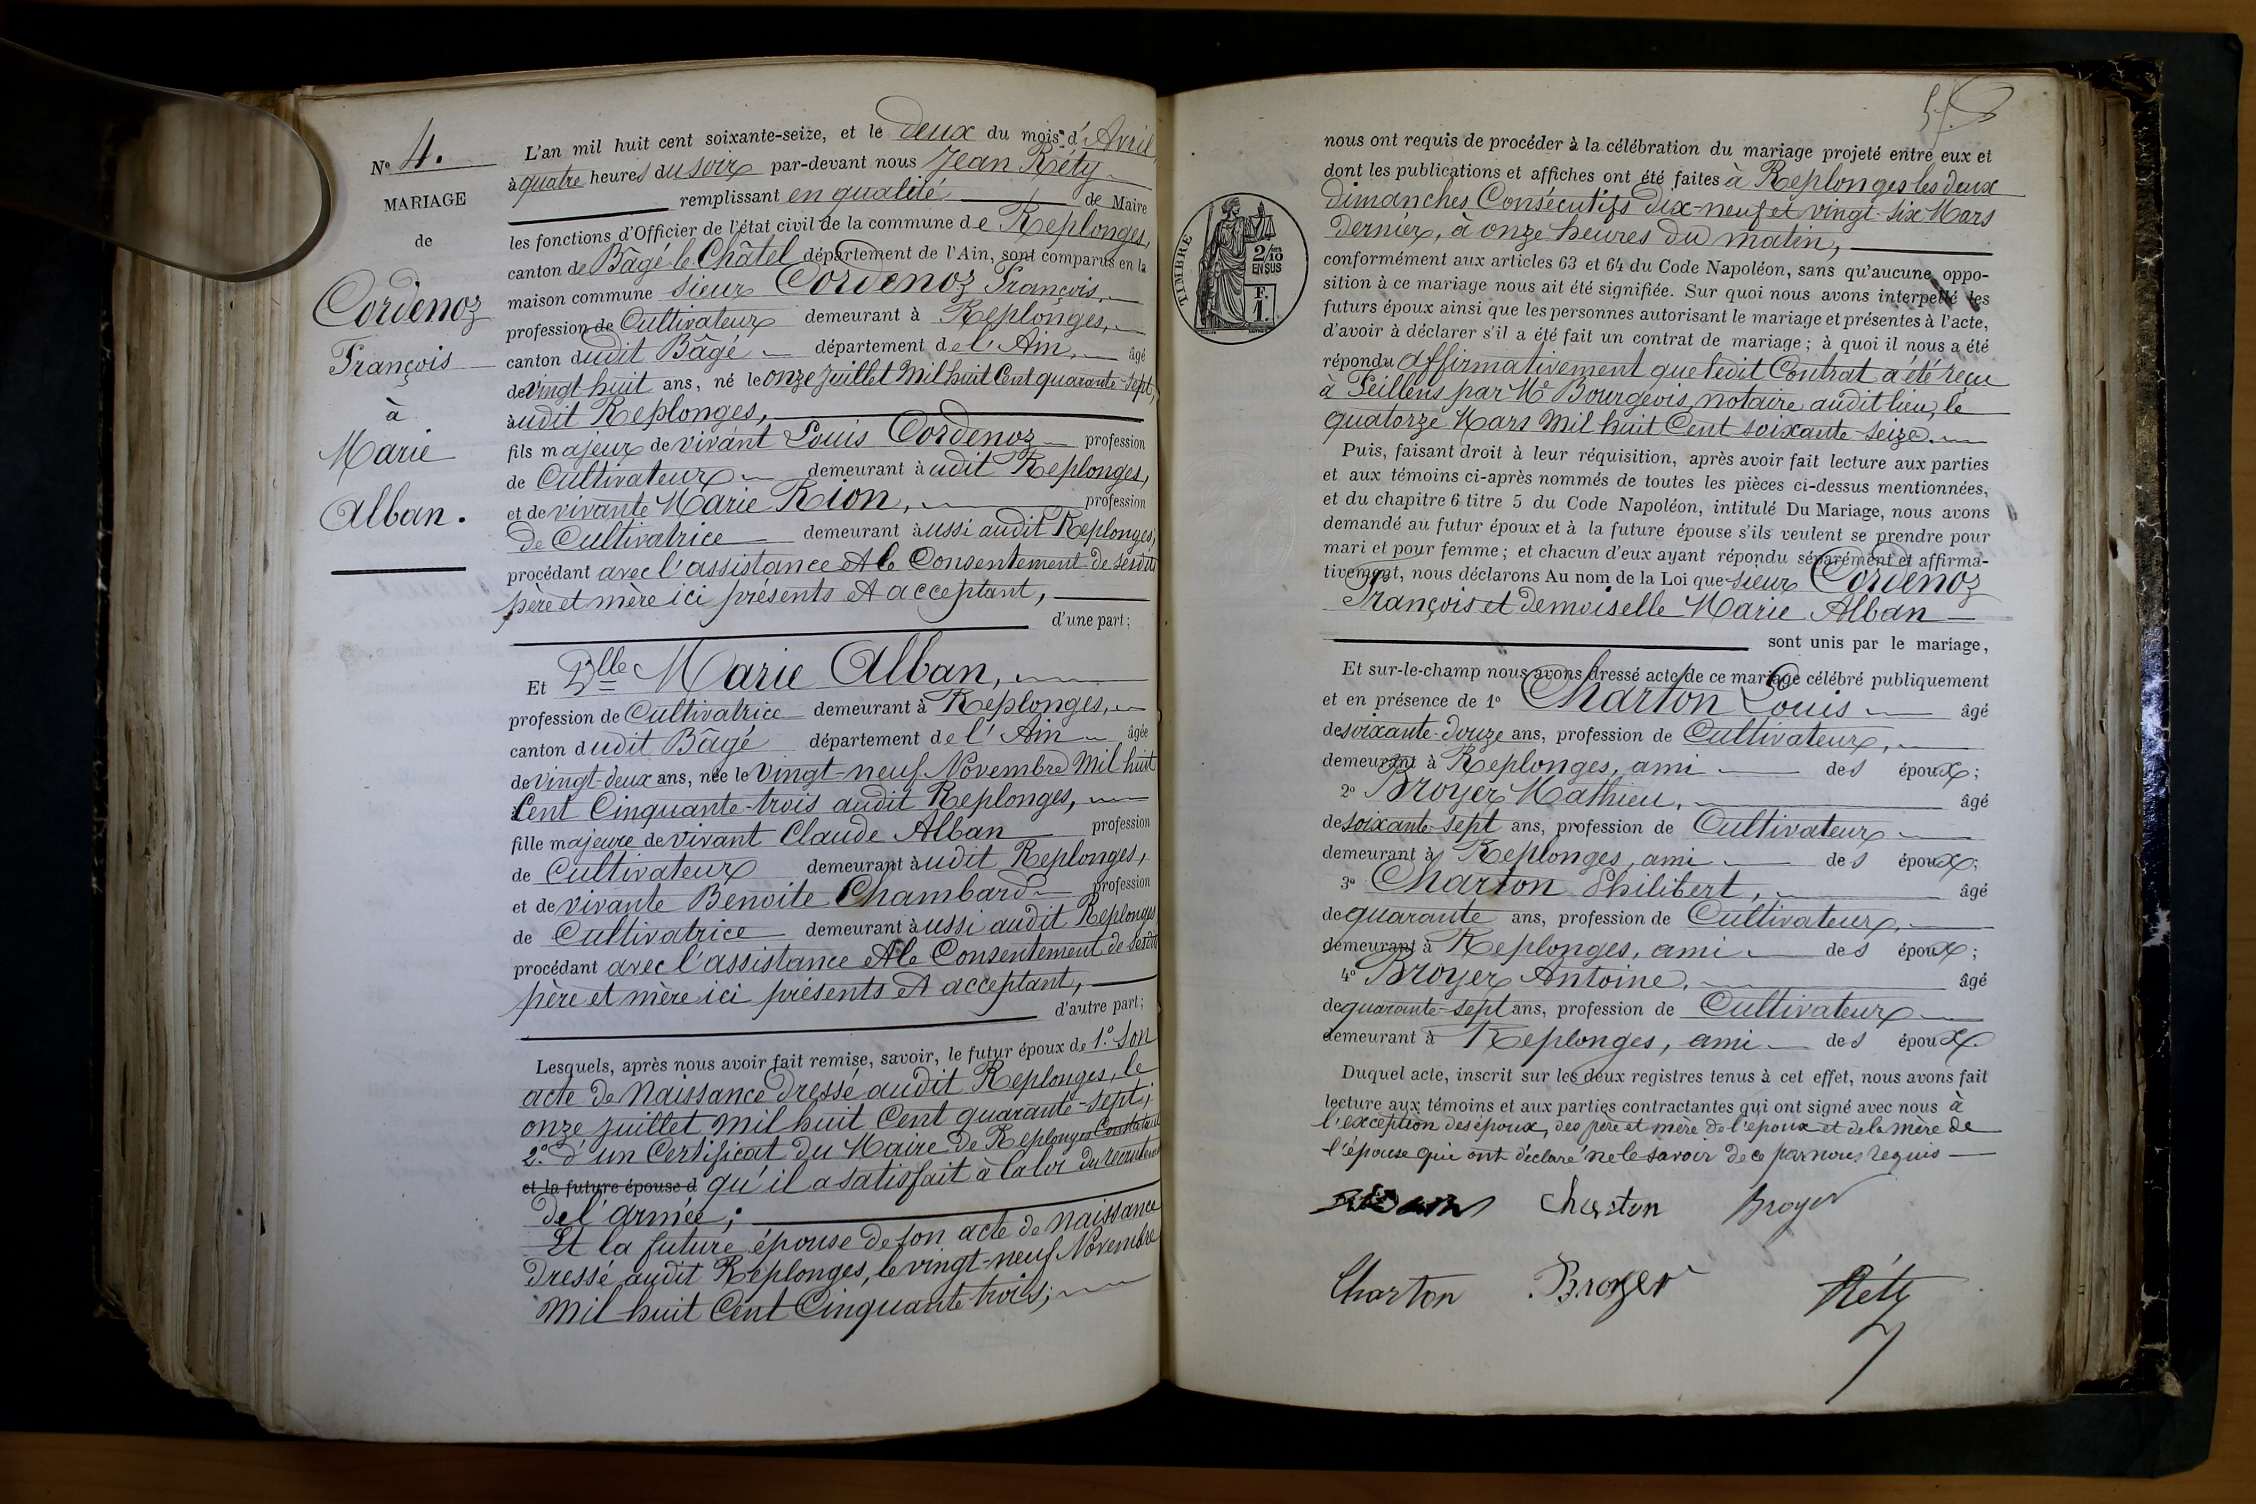 N° 4.
MARIAGE
de
Cordenoz
François
à
Marie
Alban.
L'an mil huit cent soixante-seize, et le deux du mois d'Avril,
à quatre heures du soir par-devant nous Jean Réty
remplissant en qualité de Maire
les fonctions d'Officier de l'état civil de la commune de Replonges,
canton de Bâgé-le-Châtel département de l'Ain, sont comparus en la
maison commune sieur Cordenoz François,
profession de Cultivateur demeurant à Replonges,
canton dudit Bâgé département de l'Ain, âgé
de vingt huit ans, né le onze Juillet Mil huit Cent quarante-sept,
audit Replonges,
fils majeur de vivant Louis Cordenoz profession
de Cultivateur demeurant audit Replonges,
et de vivante Marie Rion, profession
de Cultivatrice demeurant aussi audit Replonges,
procédant avec l'assistance et le Consentement de sesdits
père et mère ici présents et acceptant,
d'une part;
Et Dlle Marie Alban,
profession de Cultivatrice demeurant à Replonges,
canton dudit Bâgé département de l'Ain âgée
de vingt-deux ans, née le vingt-neuf Novembre Mil huit
Cent Cinquante-trois audit Replonges,
fille majeure de vivant Claude Alban profession
de Cultivateur demeurant audit Replonges,
et de vivante Benoite Chambard profession
de Cultivatrice demeurant aussi audit Replonges
procédant avec l'assistance et le Consentement de sesdits
père et mère ici présents et acceptant,
d'autre part;
Lesquels, après nous avoir fait remise, savoir, le futur époux de 1.° Son
acte de Naissance dressé audit Replonges, le
onze Juillet Mil huit Cent quarante-sept;
2.° d'un Certificat du Maire de Replonges Constatant
et la future épouse d qu'il a satisfait à la loi du recrutement
de l'armée;
Et la future épouse de son acte de Naissance
dressé audit Replonges, le vingt-neuf Novembre
Mil huit Cent Cinquante-trois;
TIMBRE
2/10
EN SUS
F.
1.
nous ont requis de procéder à la célébration du mariage projeté entre eux et
dont les publications et affiches ont été faites à Replonges les deux
dimanches Consécutifs dix-neuf et vingt-six Mars
dernier, à onze heures du matin,
conformément aux articles 63 et 64 du Code Napoléon, sans qu'aucune oppo-
sition à ce mariage nous ait été signifiée. Sur quoi nous avons interpellé les
futurs époux ainsi que les personnes autorisant le mariage et présentes à l'acte,
d'avoir à déclarer s'il a été fait un contrat de mariage; à quoi il nous a été
répondu affirmativement que ledit Contrat a été reçu
à Feillens par Me Bourgeois, notaire audit lieu, le
quatorze Mars Mil huit Cent soixante-seize.
Puis, faisant droit à leur réquisition, après avoir fait lecture aux parties
et aux témoins ci-après nommés de toutes les pièces ci-dessus mentionnées,
et du chapitre 6 titre 5 du Code Napoléon, intitulé Du Mariage, nous avons
demandé au futur époux et à la future épouse s'ils veulent se prendre pour
mari et pour femme; et chacun d'eux ayant répondu séparément et affirma-
tivement, nous déclarons Au nom de la Loi que sieur Cordenoz
François et demoiselle Marie Alban
sont unis par le mariage,
Et sur-le-champ nous avons dressé acte de ce mariage célébré publiquement
et en présence de 1° Charton Louis âgé
de soixante-douze ans, profession de Cultivateur,
demeurant à Replonges, ami des époux;
2° Broyer Mathieu, âgé
de soixante-sept ans, profession de Cultivateur
demeurant à Replonges, ami des époux;
3° Charton Philibert, âgé
de quarante ans, profession de Cultivateur,
demeurant à Replonges, ami des époux;
4° Broyer Antoine, âgé
de quarante-sept ans, profession de Cultivateur
demeurant à Replonges, ami des époux.
Duquel acte, inscrit sur les deux registres tenus à cet effet, nous avons fait
lecture aux témoins et aux parties contractantes qui ont signé avec nous à
l'exception des époux, des père et mère de l'époux et de la mère de
l'épouse qui ont déclaré ne le savoir de ce par nous requis
Charton Broyer
Charton Broyer Réty